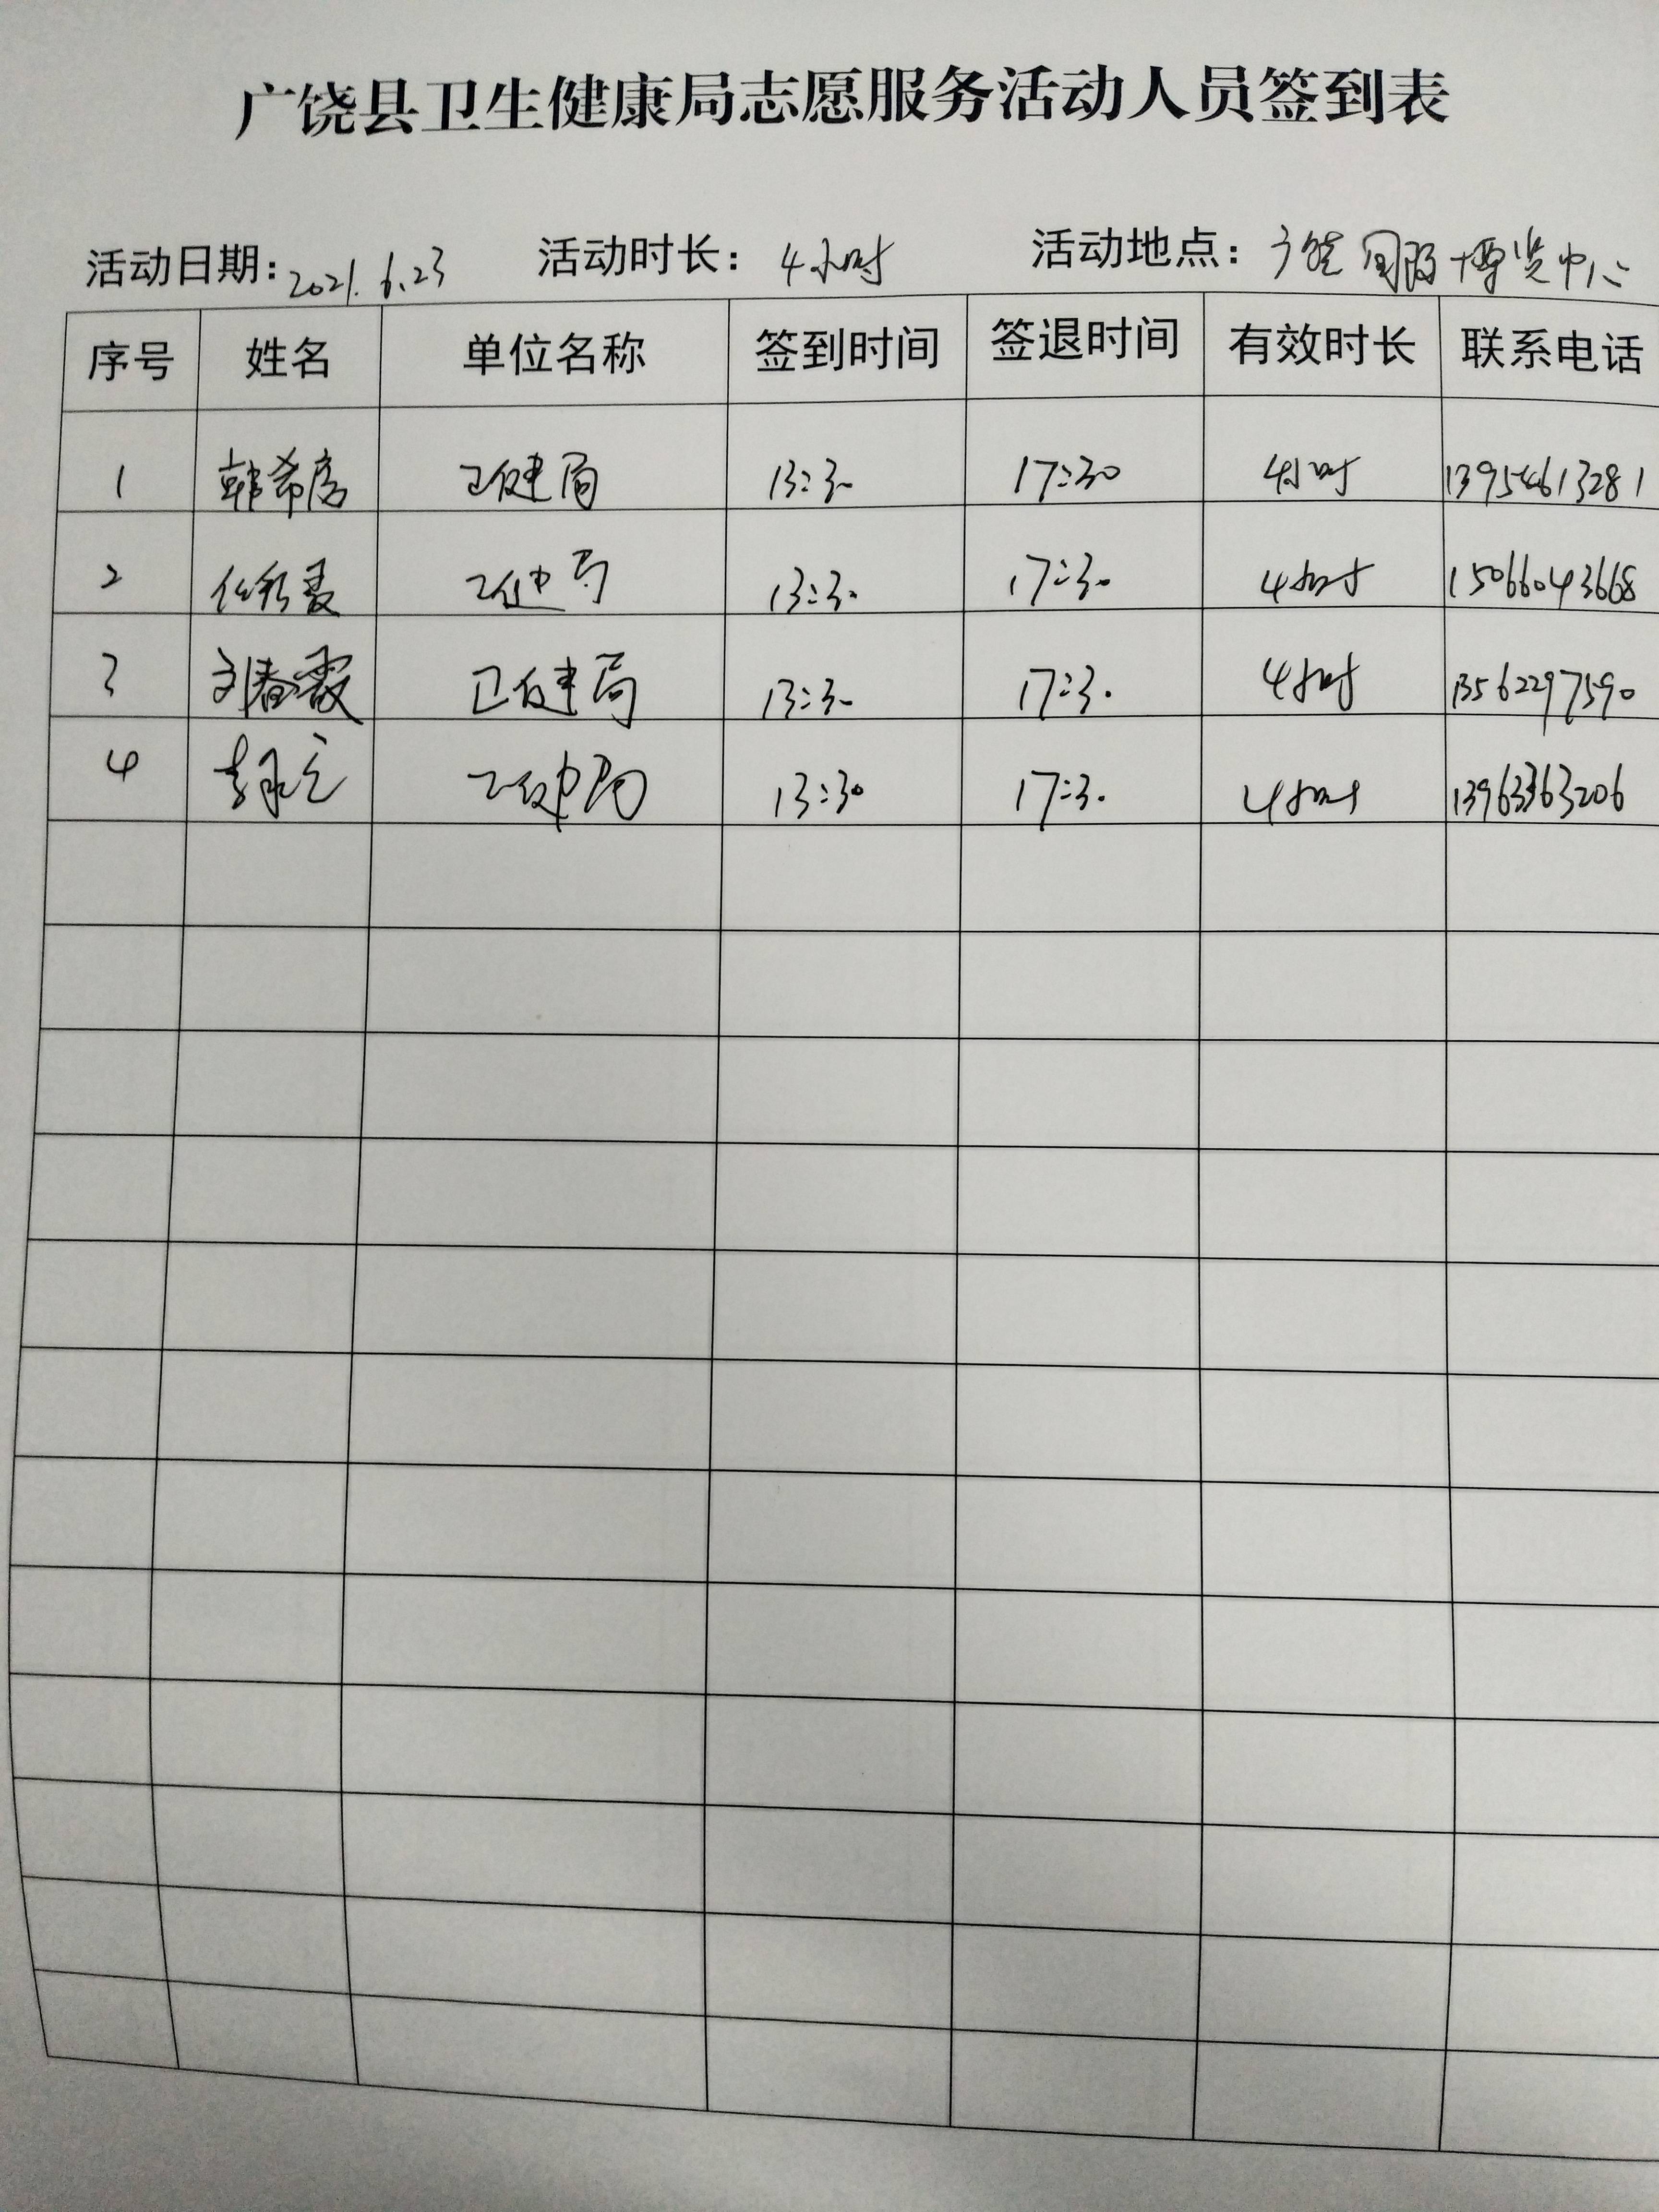 广饶县卫生健康局志愿服务活动人员签到表
活动日期：2021.6.23 活动时长：4小时 活动地点：广饶国际博览中心
序号 姓名 单位名称 签到时间 签退时间 有效时长 联系电话
1 韩希 卫健局 13:30 17:30 4小时 13954613281
2 任 卫健局 13:30 17:30 4小时 15066043668
3 刘春霞 卫健局 13:30 17:30 4小时 13562297590
4 卫健局 13:30 17:30 4小时 13963363206